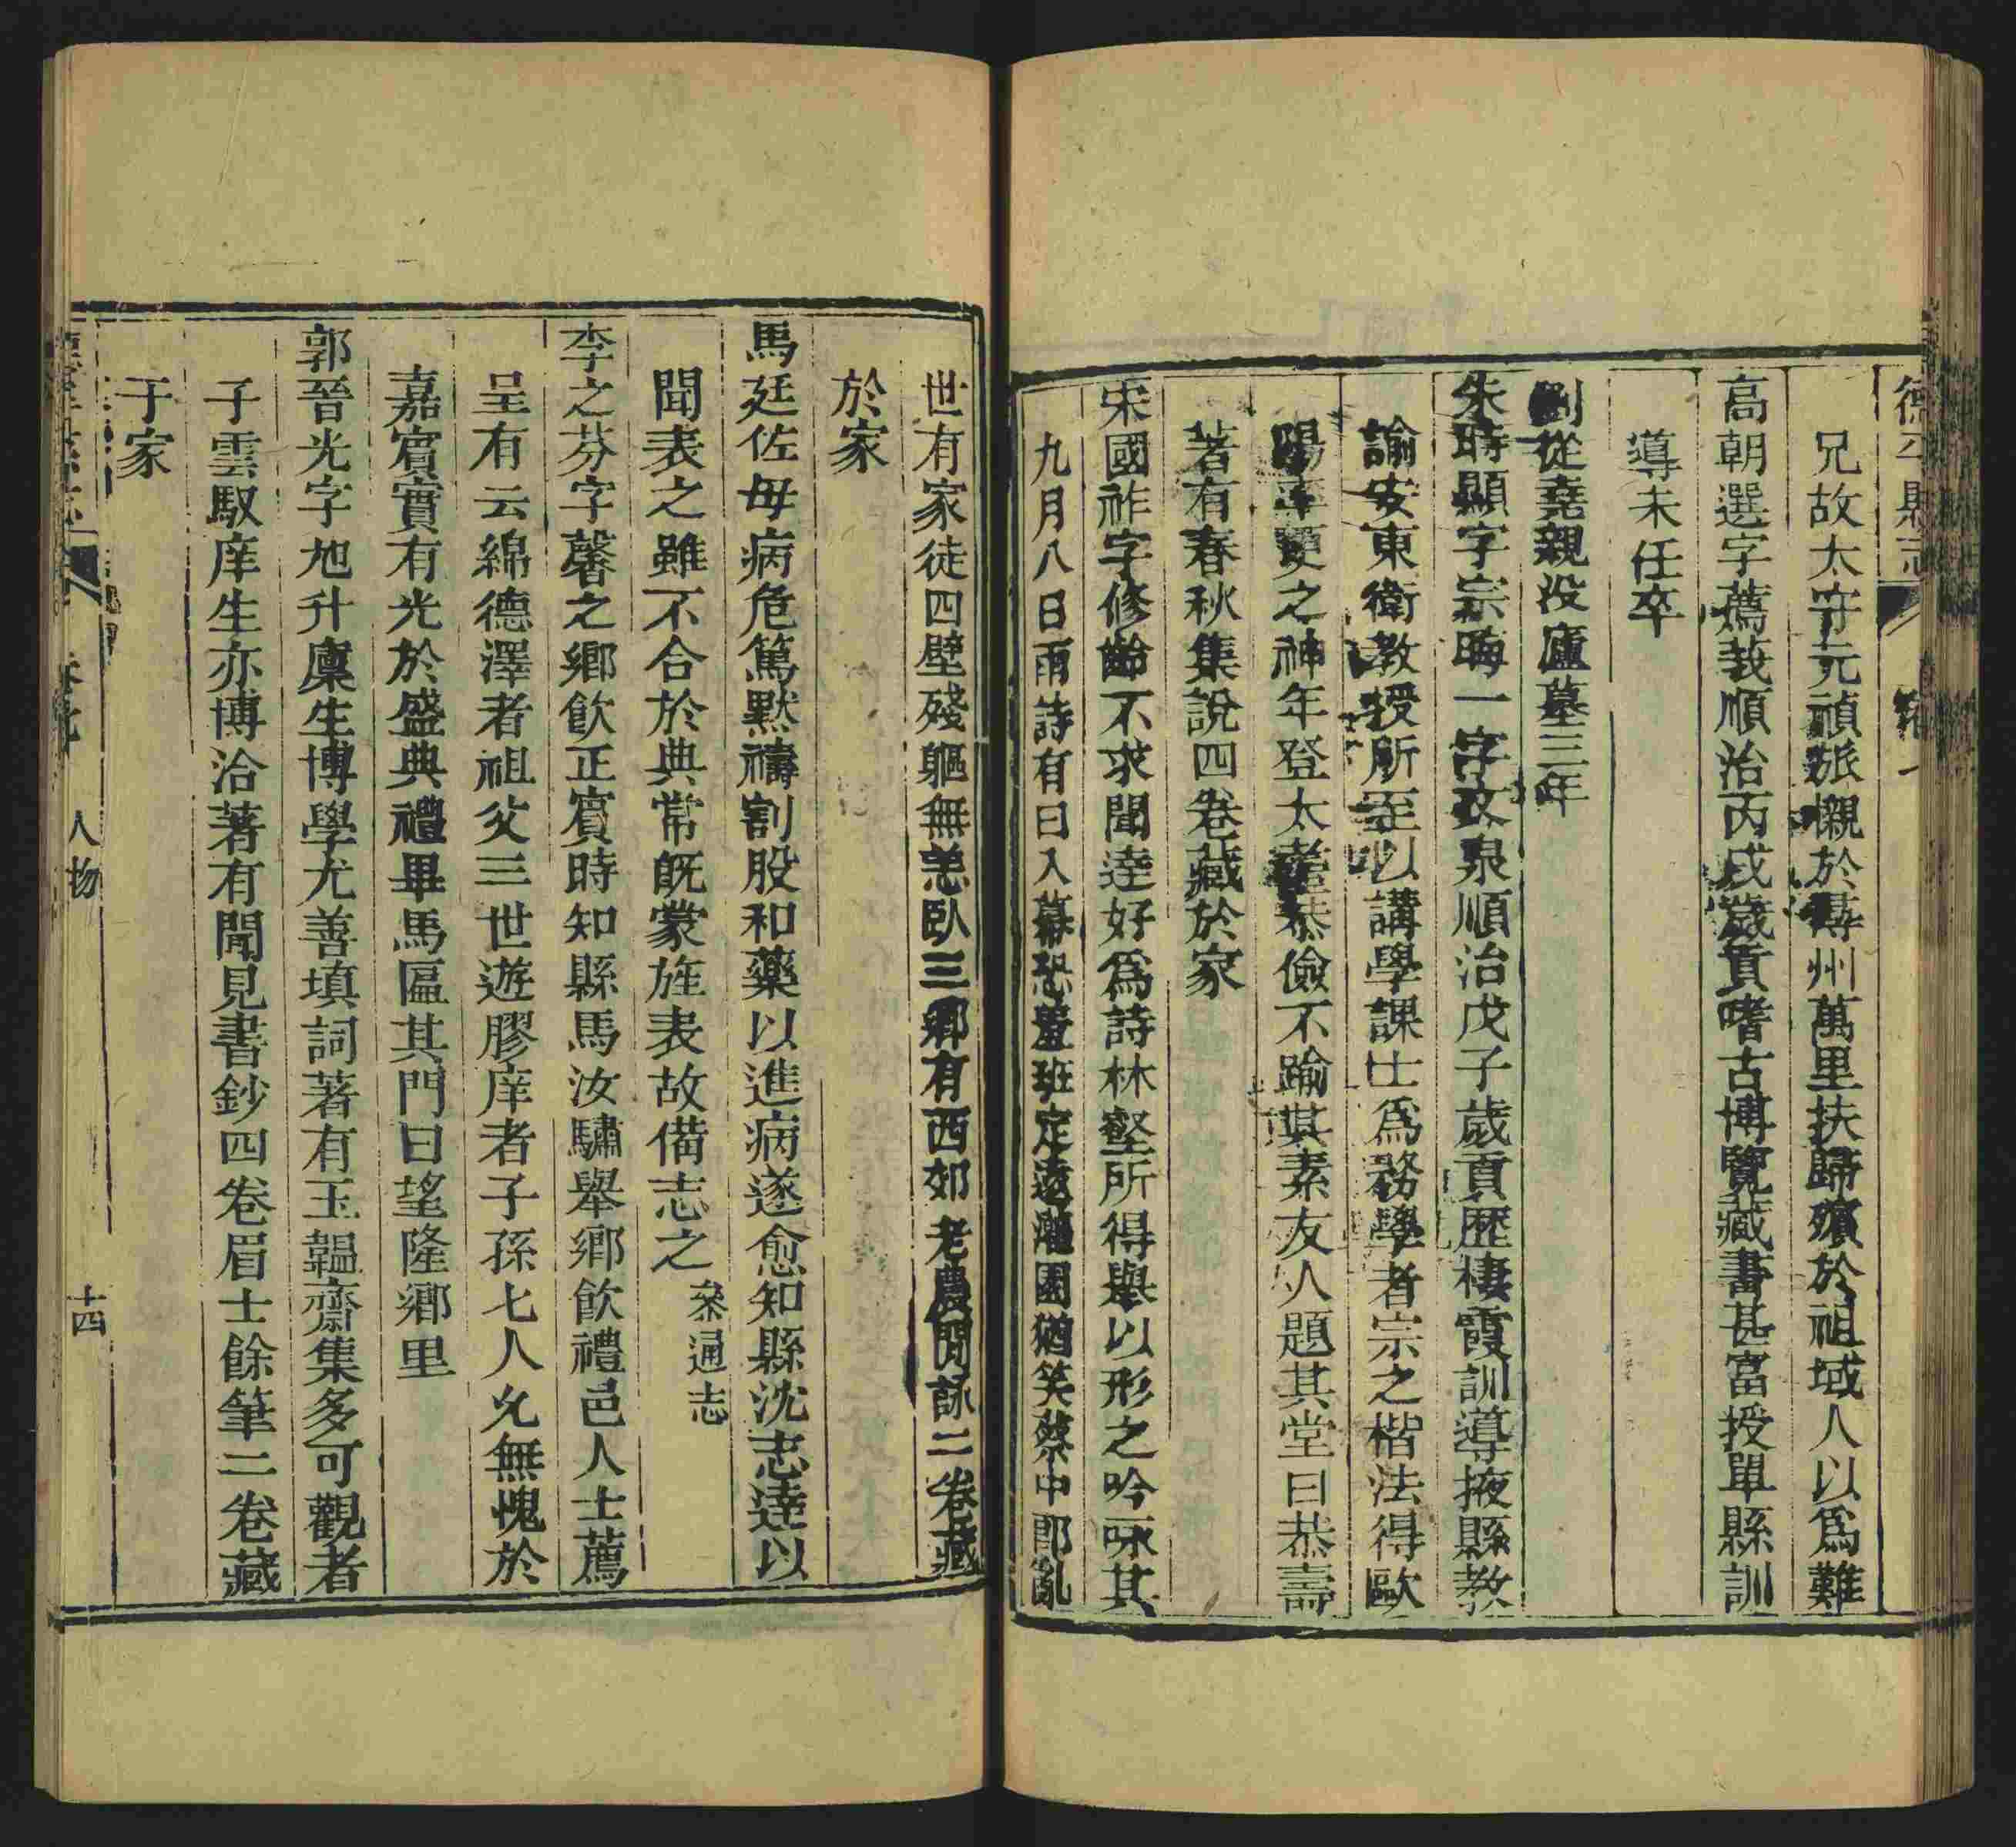 德平縣志
兄故太守元禎旅櫬於尋州萬里扶歸殯於祖域人以爲難
高朝選字薦莪順治丙戌歲貢嗜古博覽藏書甚富授單縣訓
導未任卒
劉從堯親没廬墓三年
朱時顯字宗晦一字孜泉順治戊子歲貢歷棲霞訓導掖縣教
諭安東衛教授所至以講學課士爲務學者宗之楷法得歐
陽率更之神年登太耋恭儉不踰其素友人題其堂曰恭壽
著有春秋集說四卷藏於家
宋國祚字修齡不求聞逹好爲詩林壑所得舉以形之吟咏其
九月八日雨詩有曰入幕恐羞班定遠灌園猶笑蔡中郎亂
世有家徒四壁殘軀無恙臥三鄉有西郊老農閒詠二卷藏
於家
馬廷佐母病危篤默禱割股和藥以進病遂愈知縣沈志逹以
聞表之雖不合於典常旣蒙旌表故備志之叅通志
李之芬字馨之鄉飲正賓時知縣馬汝驌舉鄉飲禮邑人士薦
呈有云綿德澤者祖父三世遊膠庠者子孫七人允無愧於
嘉賓實有光於盛典禮畢馬區其門曰望隆鄉里
郭晉光字旭升廩生博學尤善填詞著有玉韞齋集多可觀者
子雲馭庠生亦博洽著有聞見書鈔四卷眉士餘筆二卷藏
于家
人物
十四